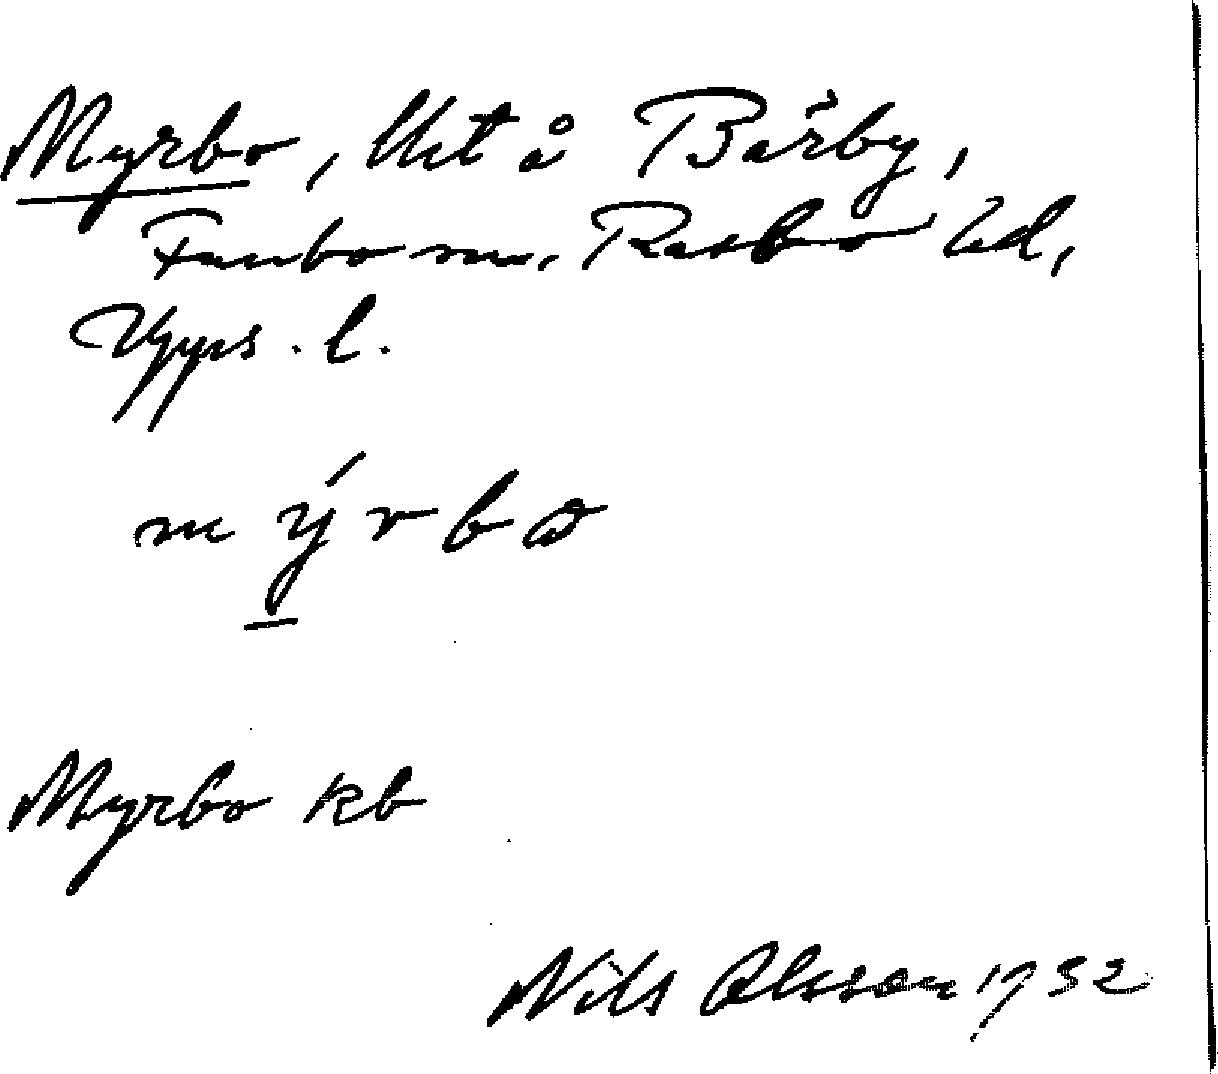 Myrbo, lht å Bärby,
Funbo sn, Rasbo hd,
Upps. l.
mýrbω
Myrbo kb
Nils Olsson 1932